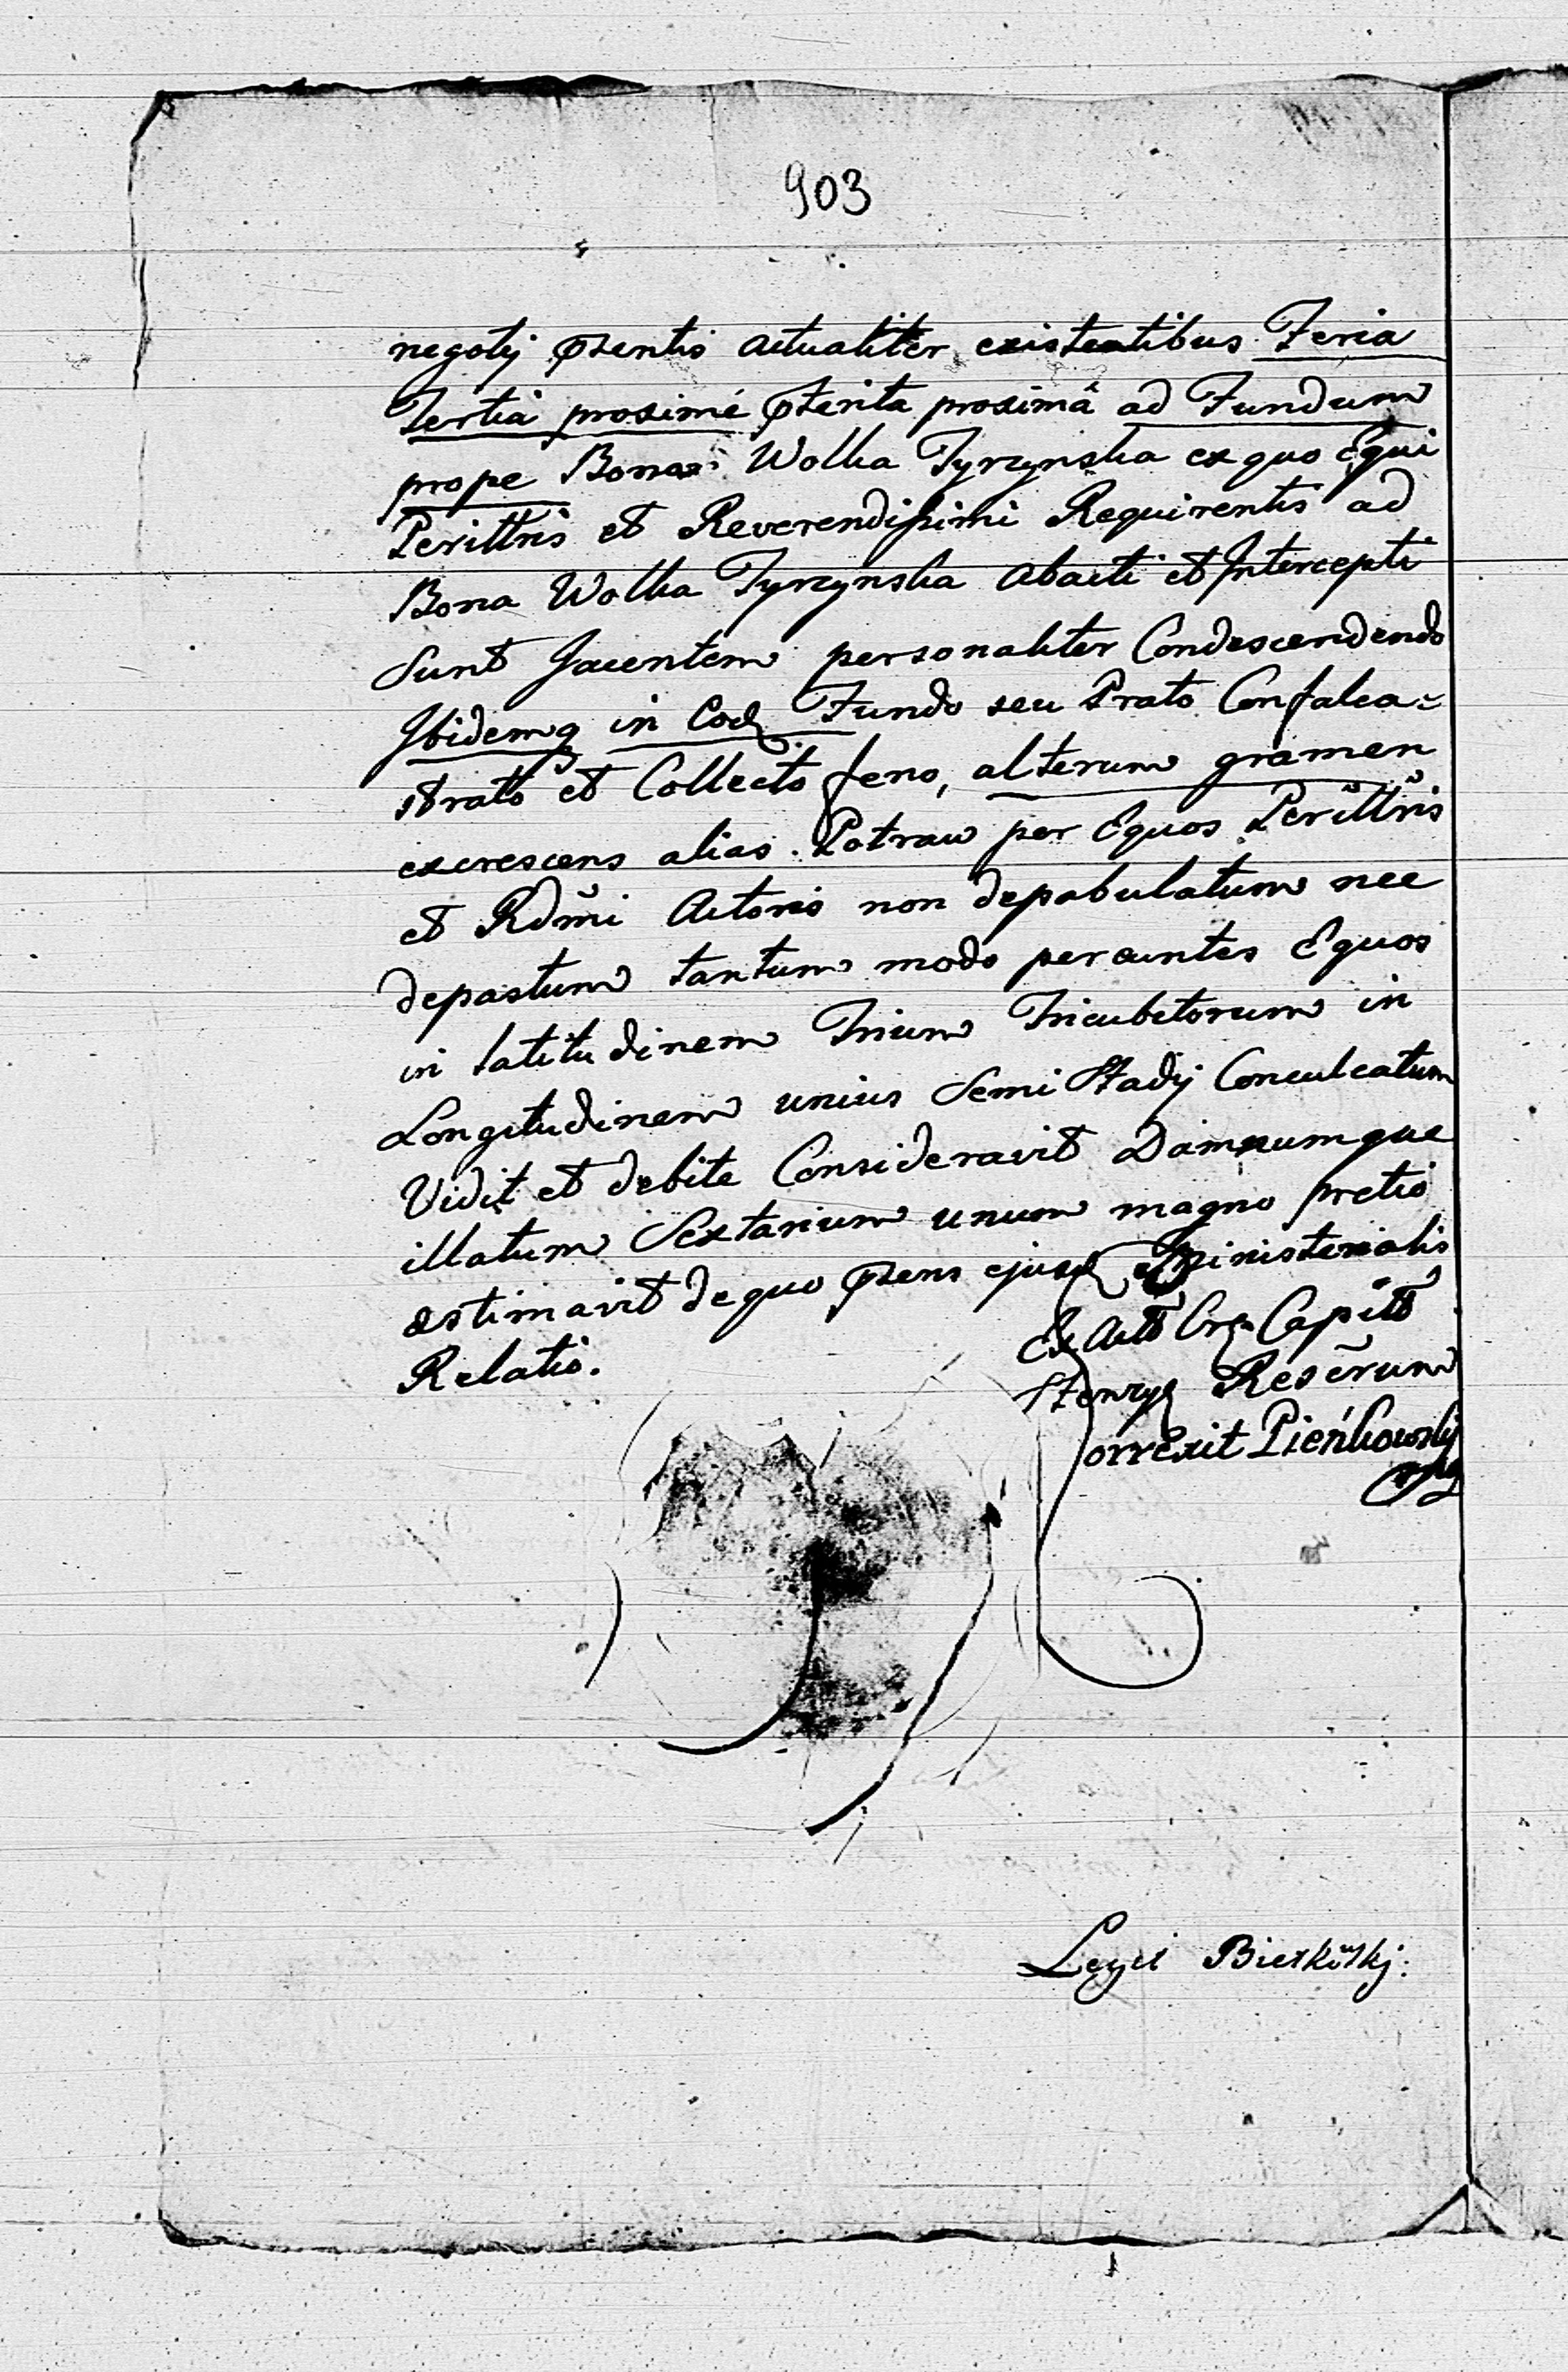 903
negotij pntis actualiter existentibus Feria
Tertiâ proximé pterita proximâ ad Fundum
prope Bona Wolka Tyrzynska ex quo Equi
Perilltris et Reverendissimi Requirentis ad
Bona Wolka Tyrzynska abacti et Intercepti
Sunt Jacentem personaliter Condescendendo
Ibidemq in Eod Fundo seu Prato Confalca=
strato et Collecto feno, alterum gramen
excrescens alias Potraw per Equos Perilltris
et Rdm̃i Actoris non depabulatum nec
depastum tantum modo pereuntes Equos
in latitudinem Trium Tricubitorum in
Longitudinem unius Semi Stadij Conculcatum
Vidit et debite Consideravit Damnumque
illatum Sextarium unum magno pretio
æstimavit de quo pns ejusd Ministerialis
Relatio.
Ex Actis Cap
Reserum
orrexit Pieńkowskj
Legit